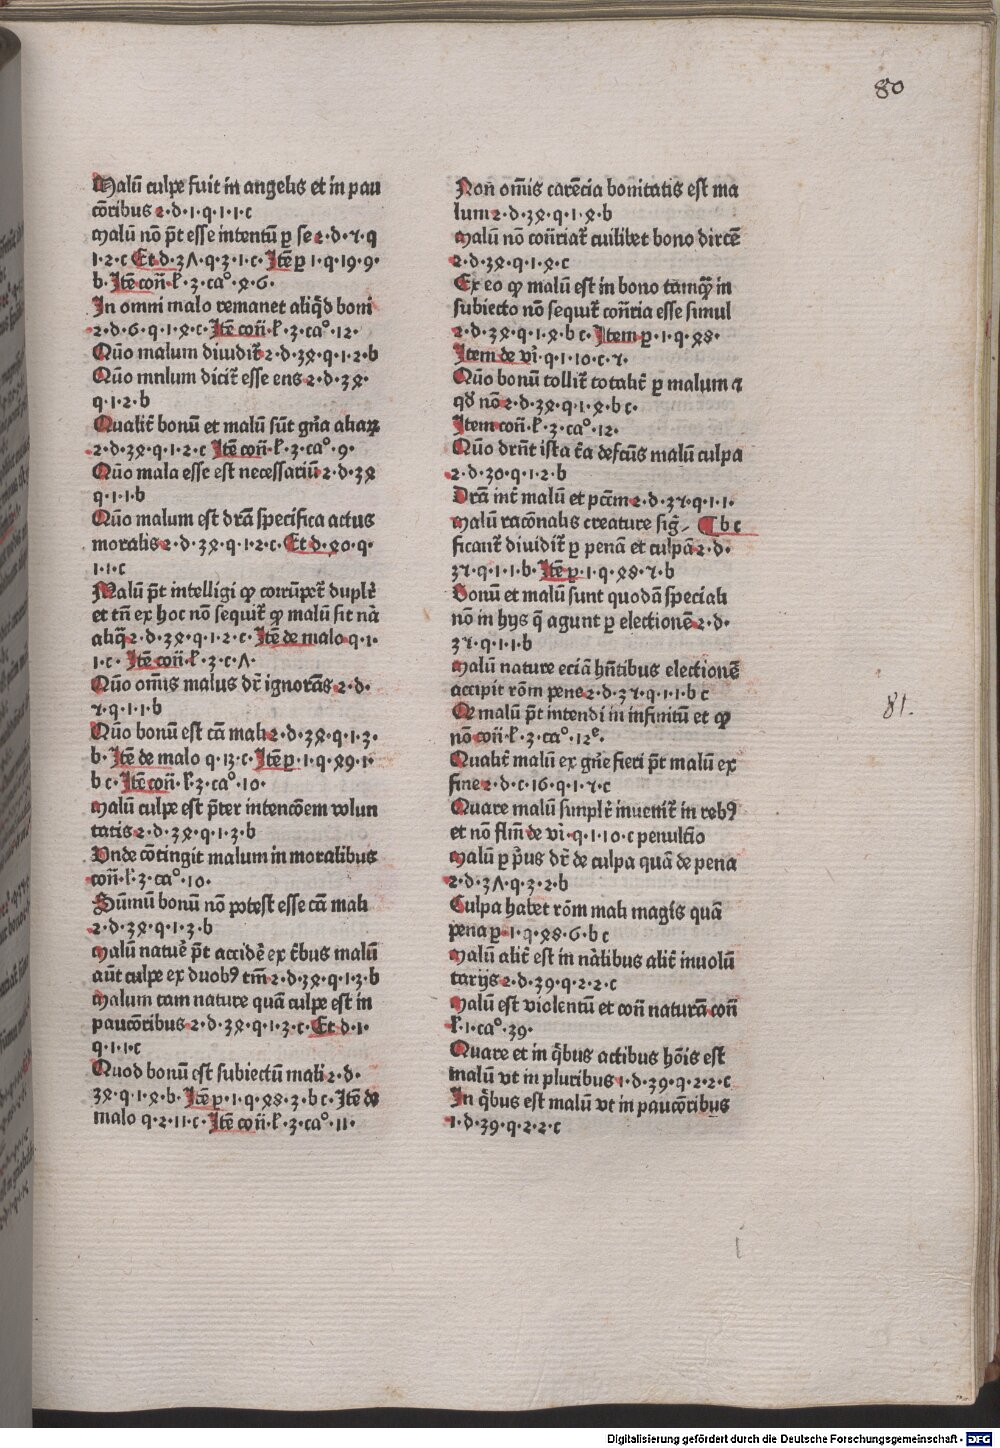 80
Malū culpe fuit in angelis et in pau
cōribus 2·d·1·q·1·1·c
Malū nō p̄t esse intentū ꝑ se 2·d·7·q
1·2·c Et d·3Λ·q·3·1·c· Itē ꝑ 1·q·19·9·
b· Itē con̄·l̄·3·ca°·4·6·
In omni malo remanet aliq̄d boni
2·d·6·q·1·4·c· Itē con̄·l̄·3·ca°·12·
Quō malum diuidit᷑ 2·d·34·q·1·2·b
Quō mnlum dicit᷑ esse ens 2·d·34·
q·1·2·b
Qualit̄ bonū et malū sūt gn̄a alioꝝ
2·d·34·q·1·2·c Itē con̄·l̄·3·ca°·9·
Quō mala esse est necessariū 2·d·34
q·1·1·b
Quō malum est dr̄a specifica actus
moralis 2·d·34·q·1·2·c· Et d·40·q·
1·1·c
Malū p̄t intelligi ꝙ corrūpet᷑ duplr̄
et tn̄ ex hoc nō sequit᷑ ꝙ malū sit nā
aliq̄ 2·d·34·q·1·2·c· Itē de malo q·1·
1·c· Itē con̄·l̄·3·c·Λ·
Quō om̄is malus dr̄ ignorās 2·d·
7·q·1·1·b
Quō bonū est cā mali 2·d·34·q·1·3·
b· Itē de malo q·13·c· Itē ꝑ·1·q·49·1·
b c· Itē con̄·l̄·3·ca°·10·
Malū culpe est p̄ter intencōem volun
tatis 2·d·34·q·1·3·b
Vnde cōtingit malum in moralibus
con̄·l̄·3·ca°·10·
Sūmū bonū nō potest esse cā mali
2·d·34·q·1·3·b
Malū nature᷑ p̄t accidē᷑ ex t̄bus malū
aūt culpe ex duobꝰ tm̄ 2·d·34·q·1·3·b
Malum tam nature quā culpe est in
paucōribus 2·d·34·q·1·3·c· Et d·1·
q·1·1·c
Quod bonū est subiectū mali 2·d·
34·q·1·4·b· Itē ꝑ·1·q·48·3·b c· Itē de
malo q·2·11·c· Itē con̄·l̄·3·ca°·11·
Non̄ om̄is carēcia bonitatis est ma
lum 2·d·34·q·1·4·b
Malū nō con̄riat᷑ cuilibet bono dircē
2·d·34·q·1·4·c
Ex eo ꝙ malū est in bono tamqȝ in
subiecto nō sequit᷑ con̄ria esse simul
2·d·34·q·1·4·b c· Item ꝑ·1·q·48·
Item de vi᷑·q·1·10·c·7·
Quō bonū tollit᷑ totalit̄ ꝑ malum ⁊
qd̄ nō 2·d·34·q·1·4·b c·
Item con̄·l̄·3·ca°·12·
Quō drn̄t ista t̄a defcūs malū culpa
2·d·30·q·1·2·b
Dr̄a int̄ malū et pctm̄ 2·d·37·q·1·1·
Malū racōnalis creature siḡ⸗ ¶ b c
ficant᷑ diuidit᷑ ꝑ penā et culpā 2·d·
37·q·1·1·b· Itē ꝑ·1·q·48·7·b
Bonū et malū sunt quodā speciali
nō in hijs q̄ agunt ꝑ electionē 2·d·
37·q·1·1·b
Malū nature eciā hn̄tibus electionē
accipit rōm pene 2·d·37·q·1·1·b c
Qr̄ malū p̄t intendi in infinitū et ꝙ
nō con̄·l̄·3·ca°·12ͤ·
Qualit̄ malū ex gn̄e fieri p̄t malū ex
fine 2·d·c·16·q·1·7·c
Quare malū simplr̄ inuenit᷑ in rebꝰ
et nō flm̄ de vi᷑·q·1·10·c penultio
Malū ꝑ p̄us dr̄ de culpa quā de pena
2·d·3Λ·q·3·2·b
Culpa habet rōm mali magis quā
pena ꝑ·1·q·48·6·b c
Malū alit̄ est in nālibus alit̄ in uolū
tarijs 2·d·39·q·2·2·c
Malū est violentū et con̄ naturā con̄
l̄·1·ca°·39·
Quare et in q̄bus actibus hōis est
malū vt in pluribus 1·d·39·q·2·2·c
In q̄bus est malū vt in paucōribus
1·d·39·q·2·2·c
81.
Digitalisierung gefördert durch die Deutsche Forschungsgemeinschaft - DFG